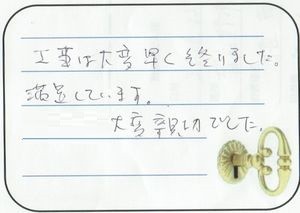 工事は大変早く終りました。
満足しています。
大変親切でした。